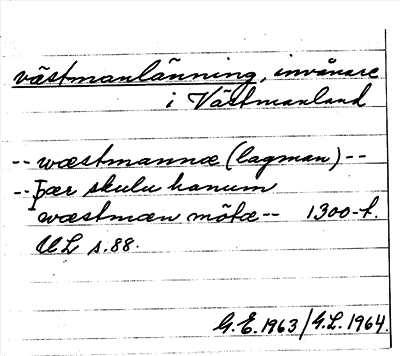 västmanlänning, invånare
i Västmanland
-- wæstmannæ (lagman) --
-- Þær skulu hanum
wæstmæn mötæ -- 1300-t.
UL s. 88.
G.E. 1963/G.L. 1964.